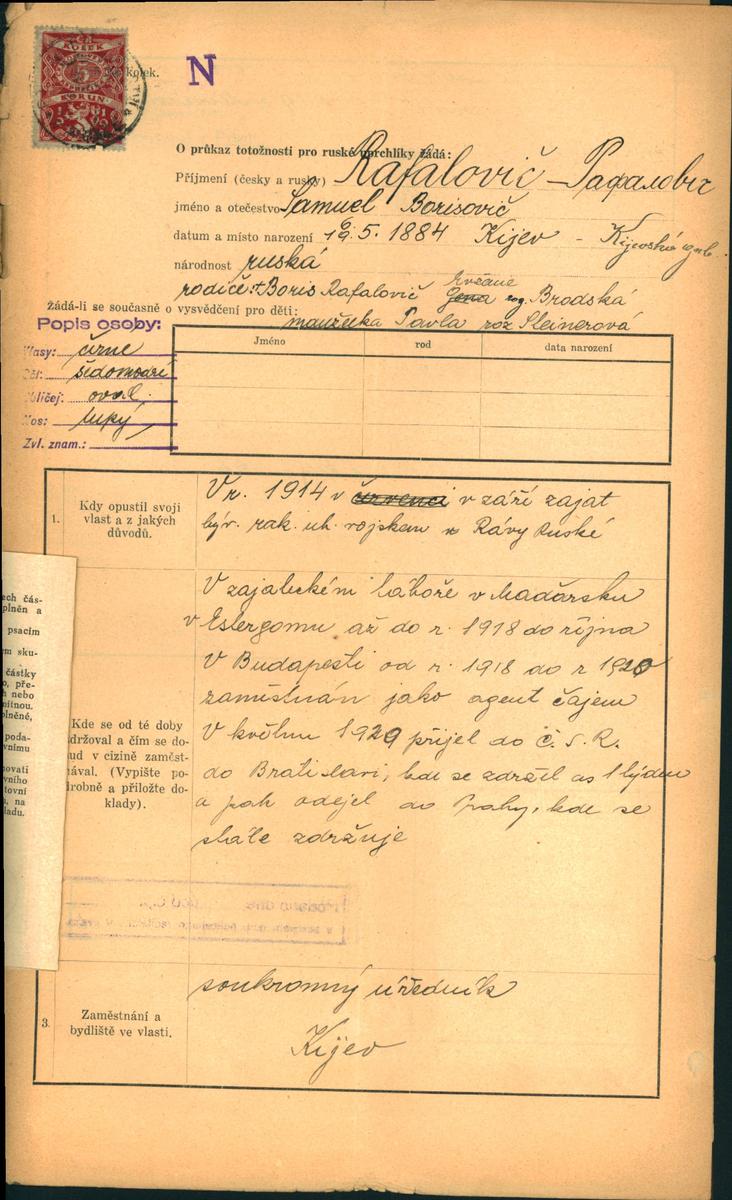 ČS.
KOLEK
5
KORUN
kolek.
N
O průkaz totožnosti pro ruské uprchlíky žádá:
Příjmení (česky a rusky) Rafalovič – Рафалович
jméno a otečestvo Samuel Borisovič
datum a místo narození 19. 5. 1884 Kijev - Kijevská gub.
národnost ruská
rodiče: Boris Rafalovič roz. Brodská
Žádá-li se současně o vysvědčení pro děti:
manželka Pavla roz Steinerová
Popis osoby:
Vlasy: černé
šedomodré
Obličej: oval.
Nos: tupý
Zvl. znam.:
Jméno
rod
data narození
1.
Kdy opustil svoji
vlast a z jakých
důvodů.
V r. 1914 v červenci v září zajat
býv. rak. uh. vojskem u Rávy Ruské
Kde se od té doby
zdržoval a čím se do-
sud v cizině zaměst-
nával. (Vypište po-
drobně a přiložte do-
klady).
V zajateckém táboře v Maďarsku
v Estergomu až do r. 1918 do října
V Budapešti od r. 1918 do r 1920
zaměstnán jako agent čajem
V květnu 1920 přijel do Č. S. R.
do Bratislavi, kde se zdržel as 1 týden
a pak odejel do Prahy, kde se
stále zdržuje
3.
Zaměstnání a
bydliště ve vlasti.
soukromný úředník
Kijev
ech čás-
plněn a
psacím
em sku-
částky
o, pře-
h nebo
mítnou.
plněné,
poda-
vnímu
novati
vního
tovní
u, na
ladu.